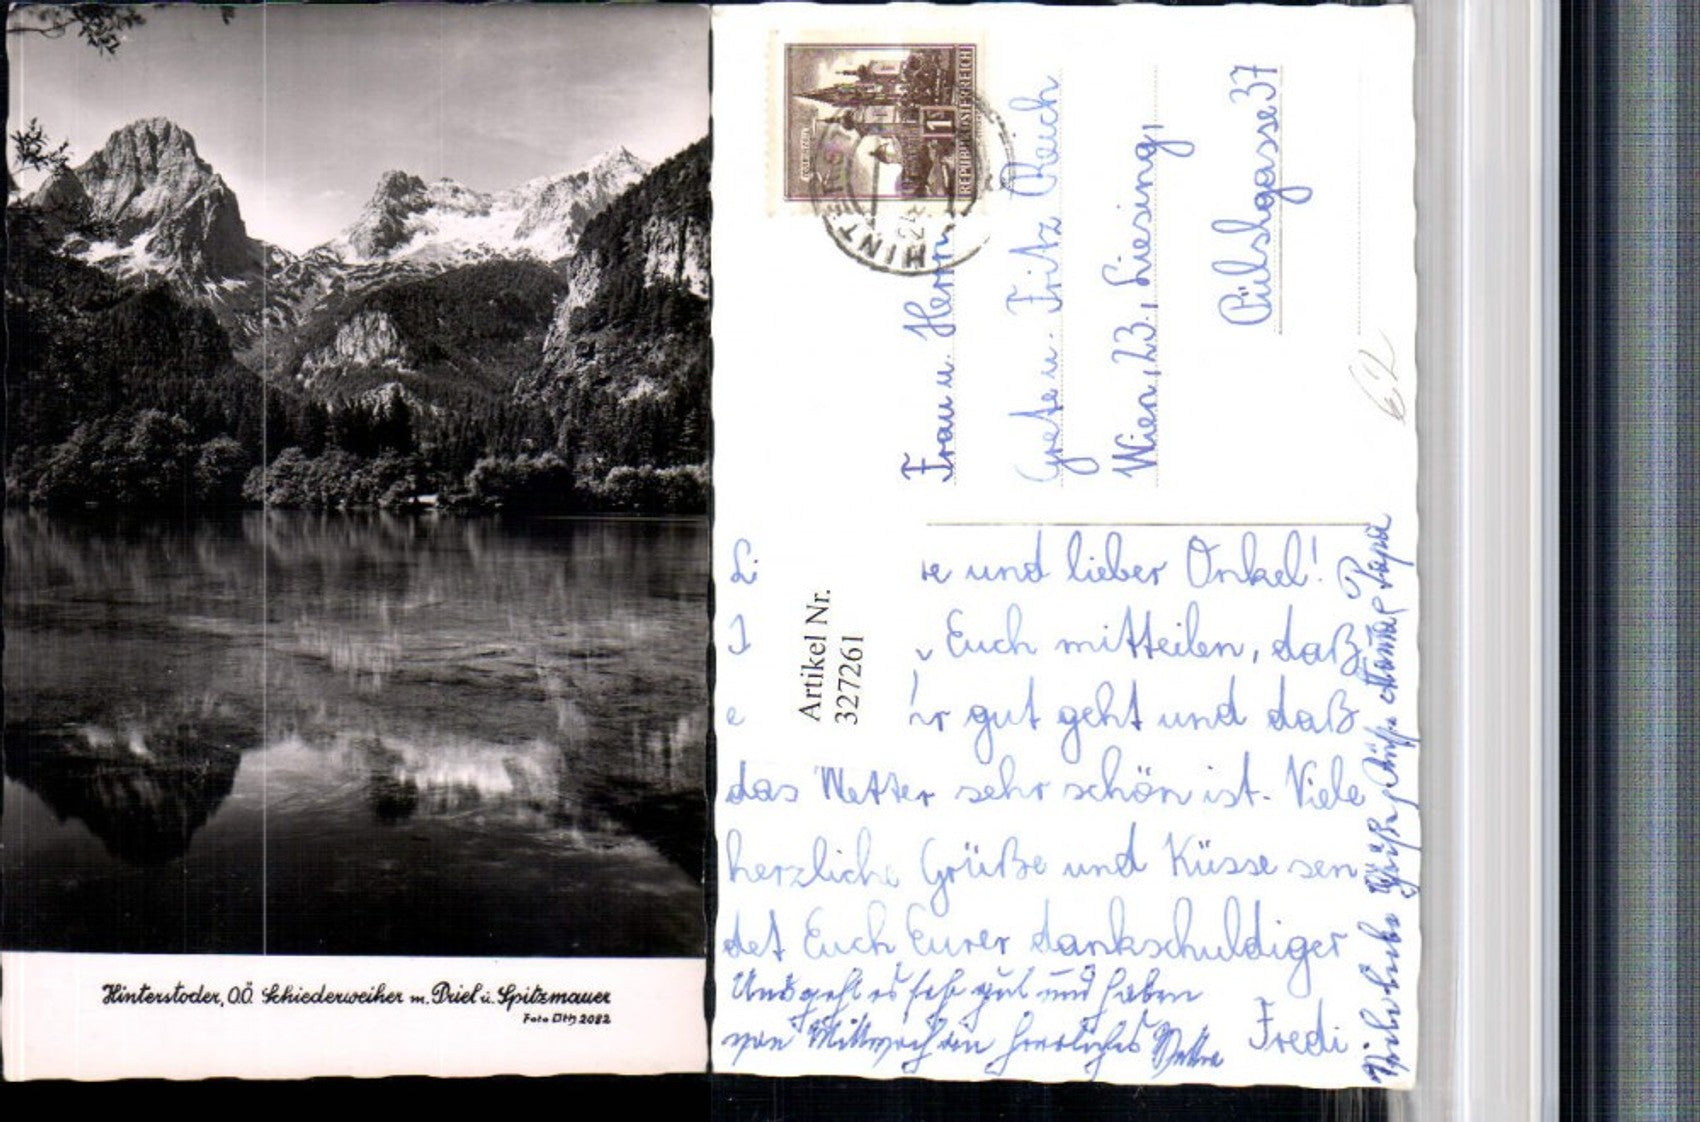 Hinterstoder, O.Ö. Schiederweiher m. Priel u. Spitzmauer
Foto Oth 2082
REPUBLIK ÖSTERREICH
1
HINTERSTODER
Frau u. Herrn
Grete u. Fritz Reich
Wien, 23., Liesing,
Pülslgasse 37
62
Artikel Nr.
327261
Li re und lieber Onkel!
I Euch mitteilen, daß
e ir gut geht und daß
das Wetter sehr schön ist. Viele
herzliche Grüße und Küsse sen
det Euch Eurer dankschuldiger
Fredi
Uns geht es sehr gut und haben
von Mittwoch an herrliches Wetter
Viele liebe Grüße Mama Papa